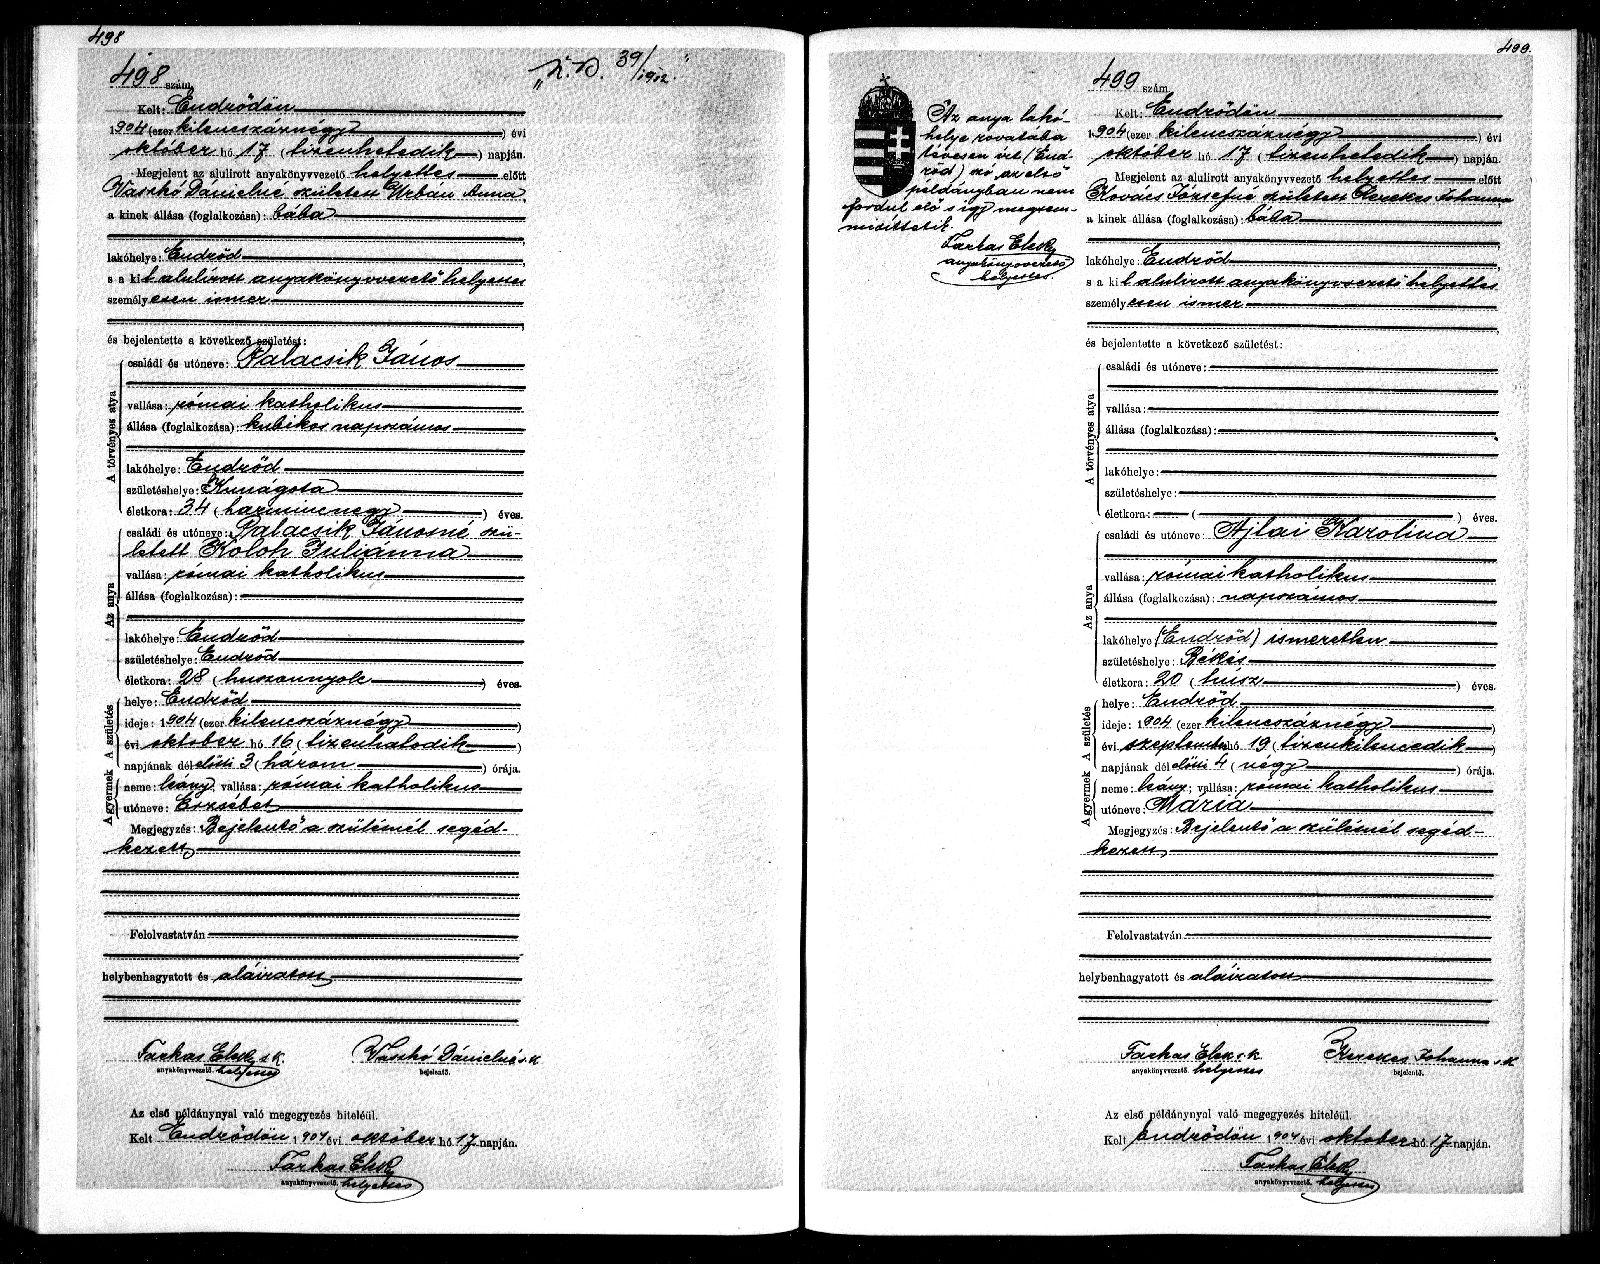 498
498 szám
"K. D. 39/1912."
Kelt: Endrődön
1904 (ezer kilencszáznégy) évi
október hó 17 (tizenhetedik) napján.
Megjelent az alulirott anyakönyvvezető helyettes előtt
Vaszkó Dánielné született Urbán Anna,
a kinek állása (foglalkozása): bába
lakóhelye: Endrőd
s a kit alulírott anyakönyvvezető helyettes
személyesen ismer
és bejelentette a következő születést:
A törvényes atya
családi és utóneve: Palacsik János
vallása: római katholikus
állása (foglalkozása): kubikos napszámos
lakóhelye: Endrőd
születéshelye: Kunágota
életkora: 34 (harmincnégy) éves.
Az anya
családi és utóneve: Palacsik Jánosné szü-
letett Koloh Juliánna
vallása: római katholikus
állása (foglalkozása):
lakóhelye: Endrőd
születéshelye: Endrőd
életkora: 28 (huszonnyolc) éves.
A születés
helye: Endrőd
ideje: 1904 (ezer kilencszáznégy)
évi október hó 16 (tizenhatodik)
napjának délelőtti 3 (három) órája.
A gyermek
neme: leány; vallása: római katholikus
utóneve: Erzsébet
Megjegyzés: Bejelentő a szülésnél segéd-
kezett
Felolvastatván
helybenhagyatott és aláiratott
Farkas Elek s.k. Vaszkó Dánielné s.k.
anyakönyvvezető. helyettes bejelentő.
Az első példánynyal való megegyezés hiteléül.
Kelt Endrődön 1904 évi október hó 17 napján.
Farkas Elek
anyakönyvvezető. helyettes
499.
499 szám
Az anya lakó-
helye rovatába
tévesen írt (End-
rőd) szó az első
példányban nem
fordul elő s így megsem-
misíttetik.
Farkas Elek
anyakönyvvezető
helyettes
Kelt: Endrődön
1904 (ezer kilencszáznégy) évi
október hó 17 (tizenhetedik) napján.
Megjelent az alulirott anyakönyvvezető helyettes előtt
Kovács Józsefné született Kerekes Johanna
a kinek állása (foglalkozása): bába
lakóhelye: Endrőd
s a kit alulírott anyakönyvvezető helyettes
személyesen ismer
és bejelentette a következő születést:
A törvényes atya
családi és utóneve:
vallása:
állása (foglalkozása):
lakóhelye:
születéshelye:
életkora: ( ) éves.
Az anya
családi és utóneve: Ajlai Karolina
vallása: római katholikus
állása (foglalkozása): napszámos
lakóhelye: (Endrőd) ismeretlen
születéshelye: Békés
életkora: 20 (húsz) éves.
A születés
helye: Endrőd
ideje: 1904 (ezer kilencszáznégy)
évi szeptember hó 19 (tizenkilencedik)
napjának délelőtti 4 (négy) órája.
A gyermek
neme: leány; vallása: római katholikus
utóneve: Mária
Megjegyzés: Bejelentő a szülésnél segéd-
kezett
Felolvastatván
helybenhagyatott és aláiratott
Farkas Elek s.k. Kerekes Johanna s.k.
anyakönyvvezető. helyettes bejelentő.
Az első példánynyal való megegyezés hiteléül.
Kelt Endrődön 1904 évi október hó 17 napján.
Farkas Elek
anyakönyvvezető. helyettes